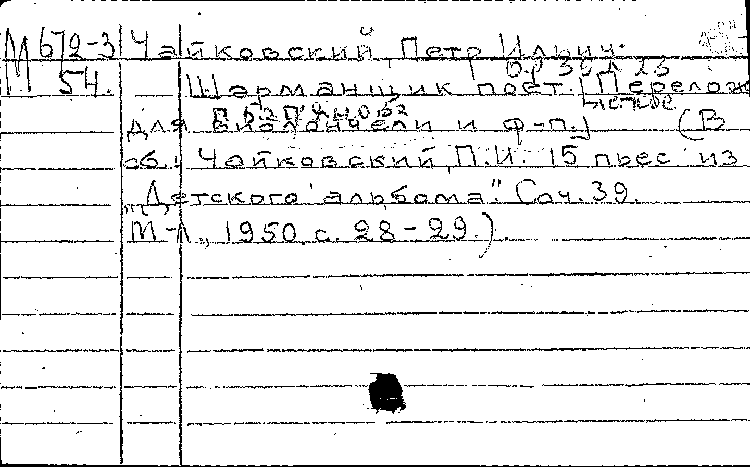 М 672-3 Чайковский, Петр Ильич.
ор 39 № 23
54. Шарманщик поет. [Перелож
для виолончели и ф-п.] (В
сб.: Чайковский, П.И. 15 пьес из
"Детского альбома". Соч. 39.
М-Л., 1950, с. 28-29.)